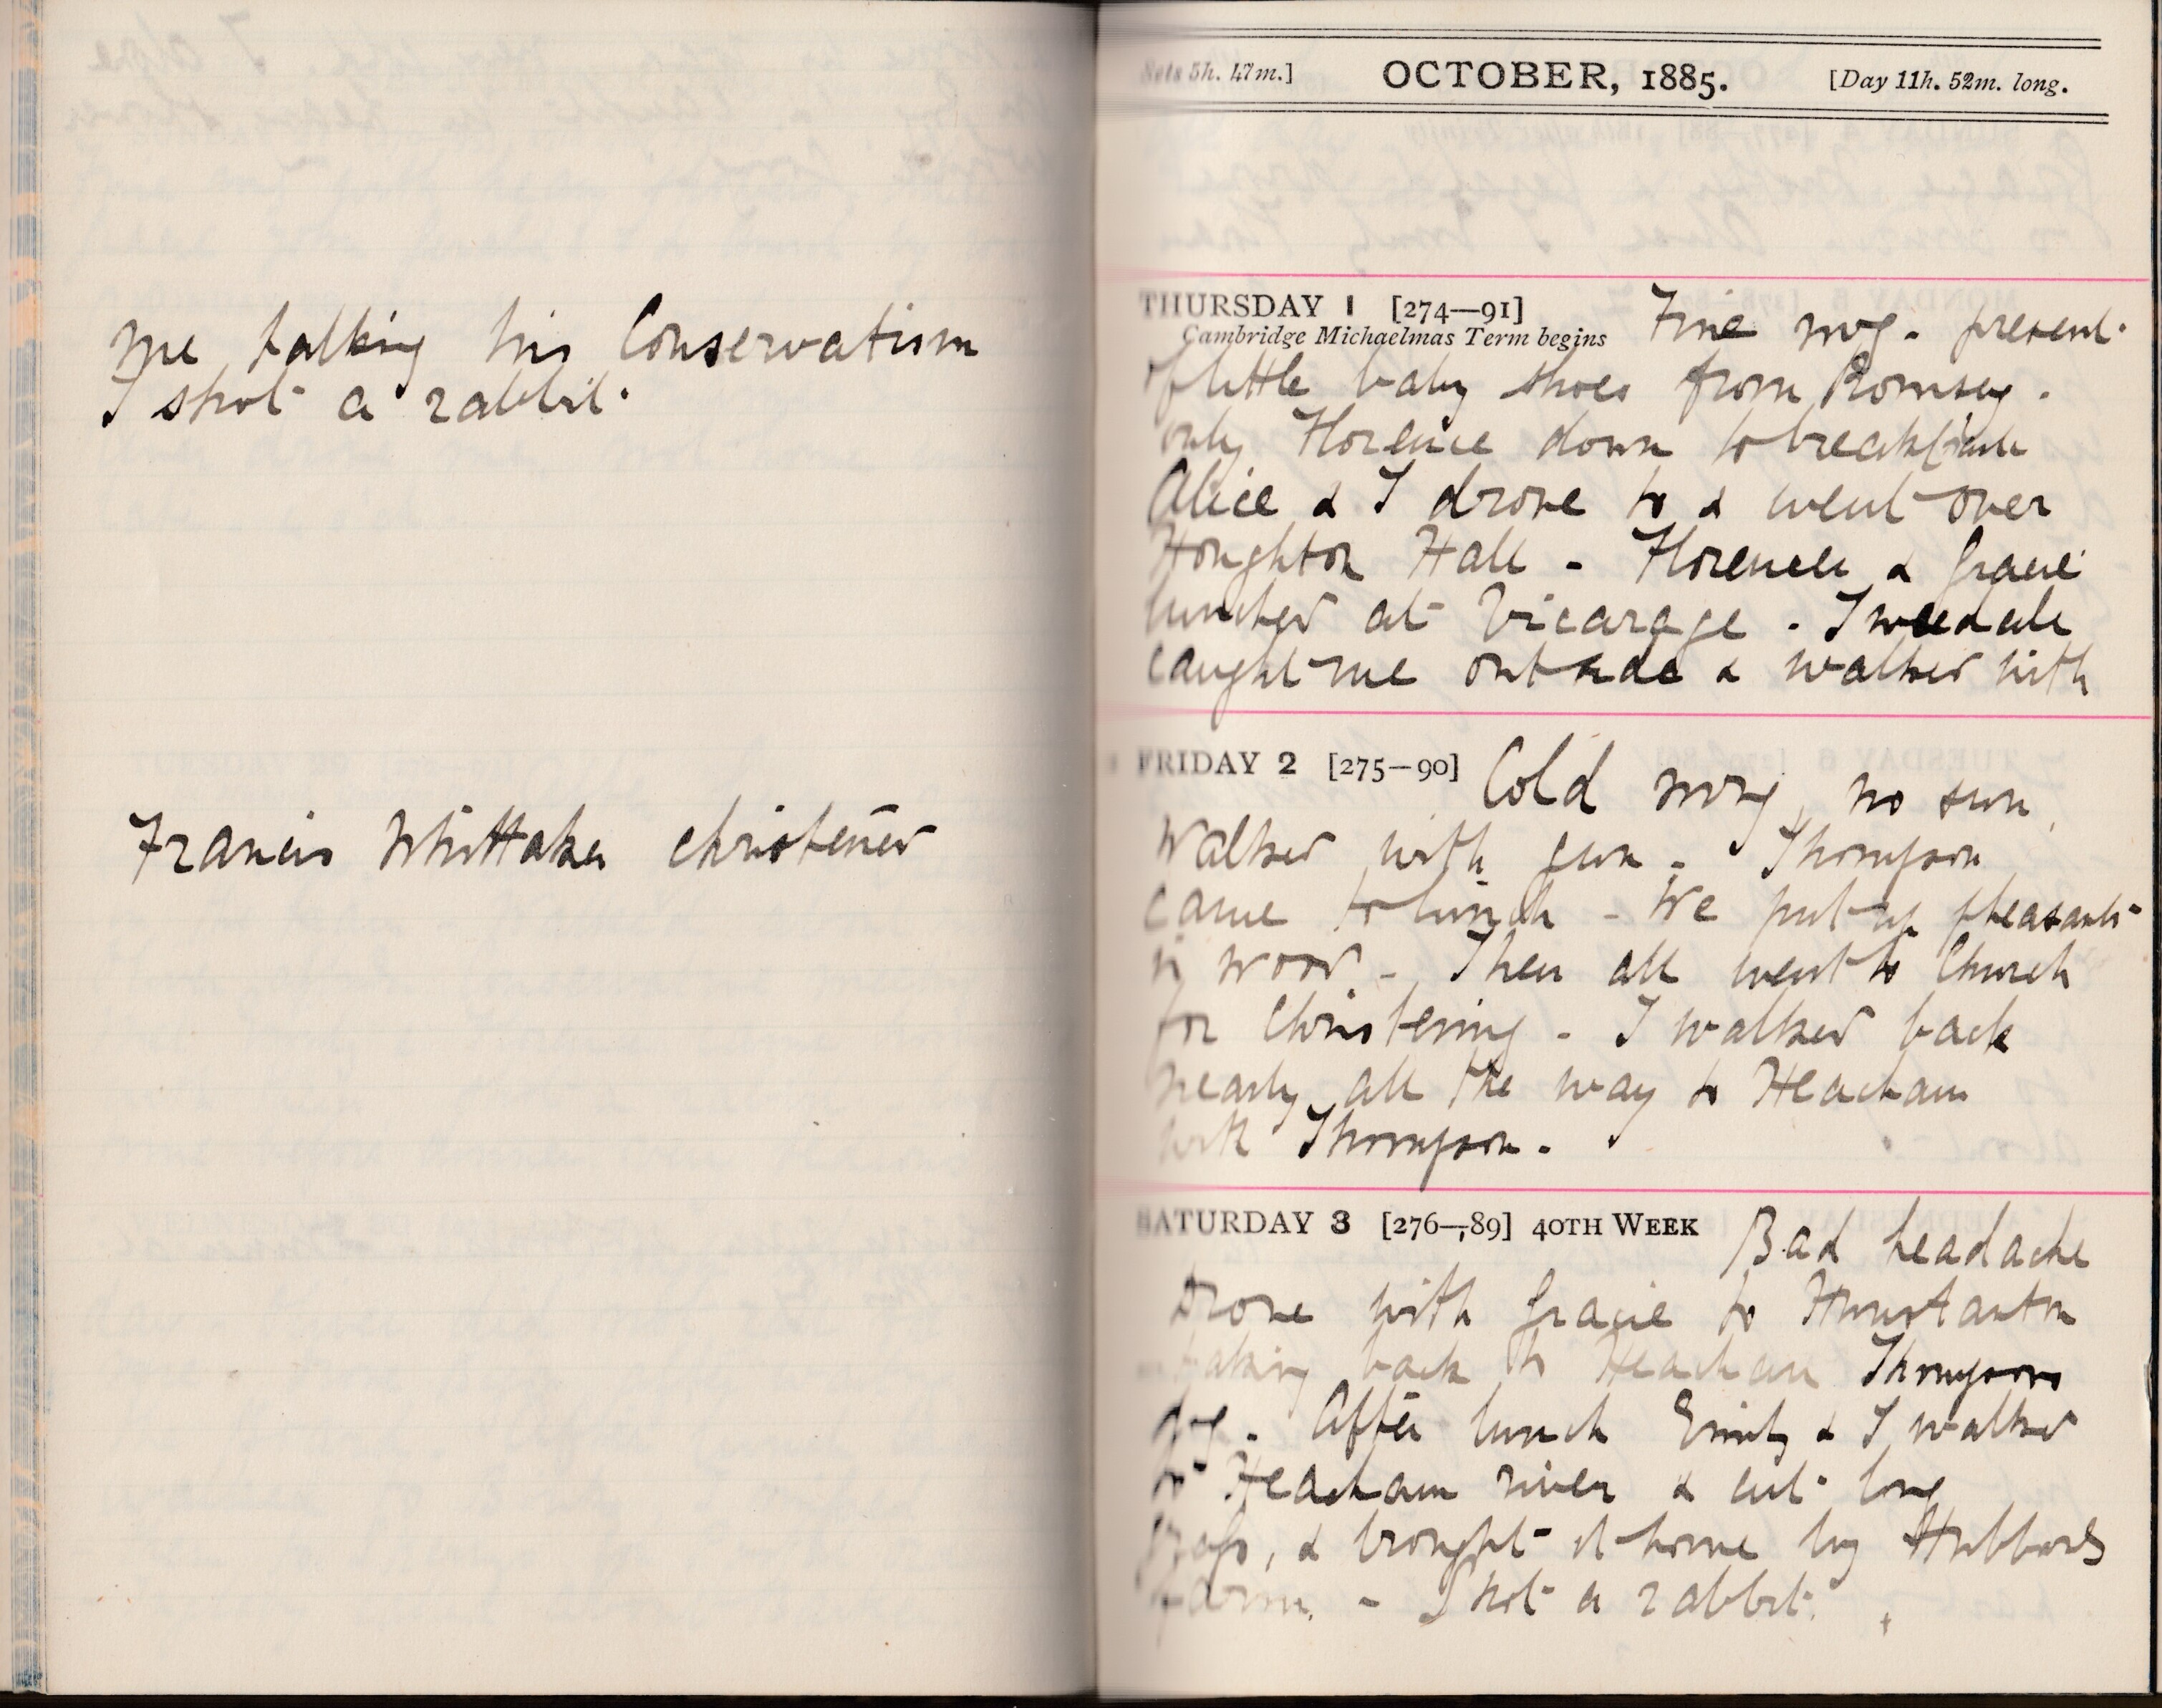 me talking his Conservatism
I shot a rabbit.
Francis Whittaker christened
Sets 5h. 47m.] OCTOBER, 1885. [Day 11h. 52m. long.
THURSDAY 1 [274—91] Fine mg. present
Cambridge Michaelmas Term begins
of little baby shoes from Romsey.
only Florence down to breakfast
Alice & I drove to & went over
Houghton Hall - Florence & Gracie
lunched at Vicarage. Tweedale
caught me outside & walked with
FRIDAY 2 [275—90] Cold mng, no sun,
Walked with gun - Thompson
came to lunch - We put up pheasants
in wood - Then all went to Church
for Christening - I walked back
nearly all the way to Heacham
with Thompson -
SATURDAY 3 [276—89] 40TH WEEK Bad headache
Drove with Gracie to Hunstanton
taking back to Heacham Thompsons
gig. After lunch Emily & I walked
to Heacham river & cut long
grass, & brought it home by Hubbards
Farm. - Shot a rabbit.